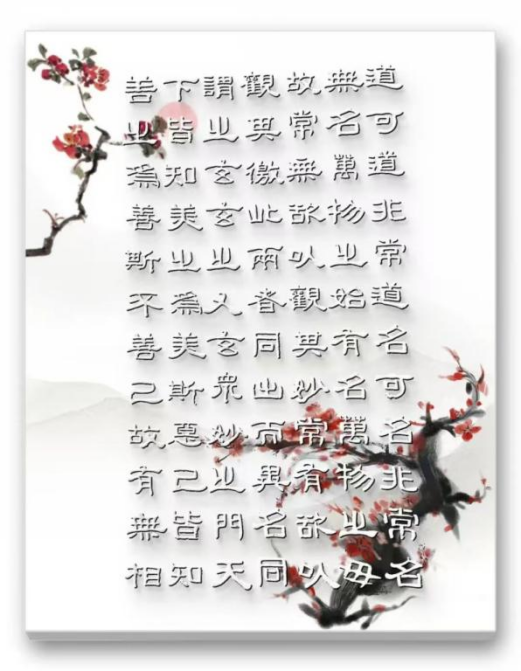 道可道非常道名可名非常名
無名萬物之始有名萬物之母
故常無欲以觀其妙常有欲以
觀其徼此兩者同出而異名同
謂之玄玄之又玄眾妙之門天
下皆知美之為美斯惡已皆知
善之為善斯不善已故有無相